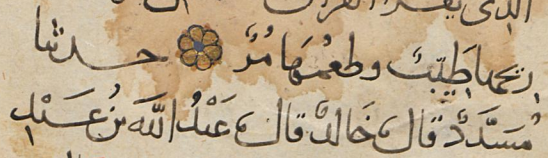 الذى يقرا القران
ريحها طيب وطعمها مر حدثنا
مسدد قال خالد قال عبد الله بن